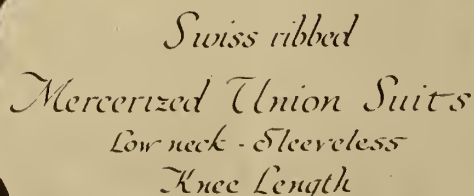 Swiss ribbed
Mercerized Union Suits
Low neck - Sleeveless
Knee Length